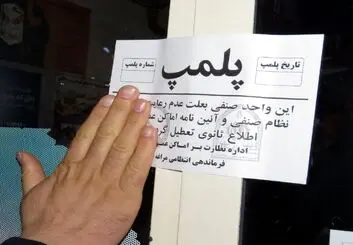 شماره پلمپ
پلمپ
تاریخ پلمپ
این واحد صنفی بعلت عدم رعایت
نظام صنفی و آئین نامه اماکن
اطلاع ثانوی تعطیل
اداره نظارت بر اماکن
فرماندهی انتظامی